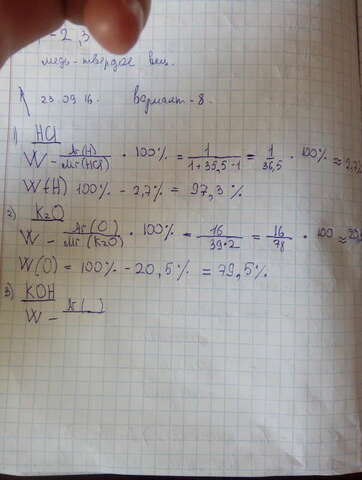 - 2,3
медь - твердое вещ.
23.09.16. вариант - 8.
1) HCl
W - Ar(H) / Mr(HCl) · 100% = 1 / 1+35,5·1 = 1 / 36,5 · 100% ≈ 2,7%
W(H) 100% - 2,7% = 97,3%
2) K2O
W - Ar(O) / Mr(K2O) · 100% = 16 / 39·2 = 16 / 78 · 100 ≈ 20,
W(O) = 100% - 20,5% = 79,5%
3) KOH
W - Ar( )